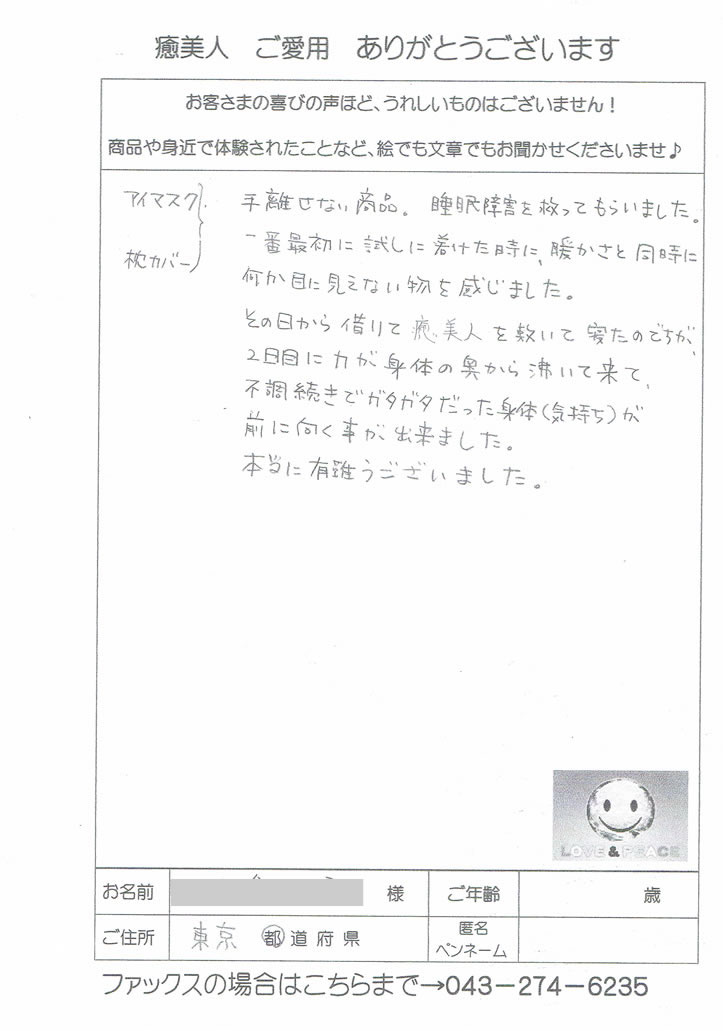 癒美人　ご愛用　ありがとうございます
お客さまの喜びの声ほど、うれしいものはございません！
商品や身近で体験されたことなど、絵でも文章でもお聞かせくださいませ♪
アイマスク
枕カバー
手離せない商品。睡眠障害を救ってもらいました。
一番最初に試しに着けた時に、暖かさと同時に
何か目に見えない物を感じました。
その日から借りて癒美人を敷いて寝たのですが、
2日目に力が身体の奥から沸いて来て、
不調続きでガタガタだった身体(気持ち)が
前に向く事が出来ました。
本当に有難うございました。
LOVE & PEACE
お名前　様　ご年齢　歳
ご住所　東京　都道府県　匿名ペンネーム
ファックスの場合はこちらまで→043－274－6235